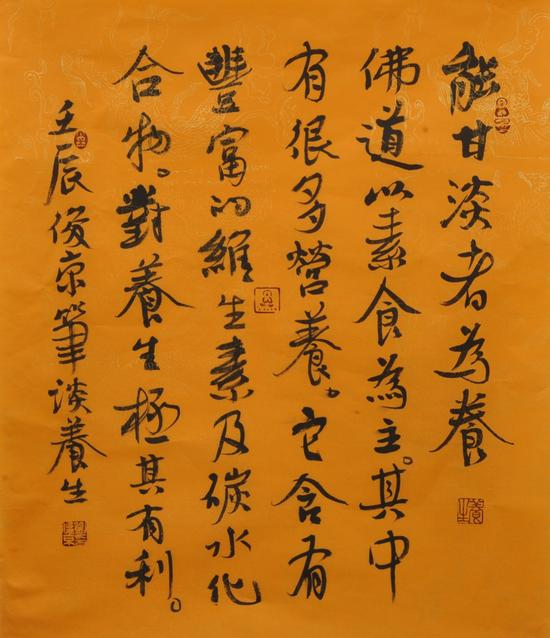 能甘淡者為養
佛道以素食為主。其中
有很多營養。它含有
豐富的維生素及碳水化
合物。對養生極其有利。
壬辰俊京筆談養生